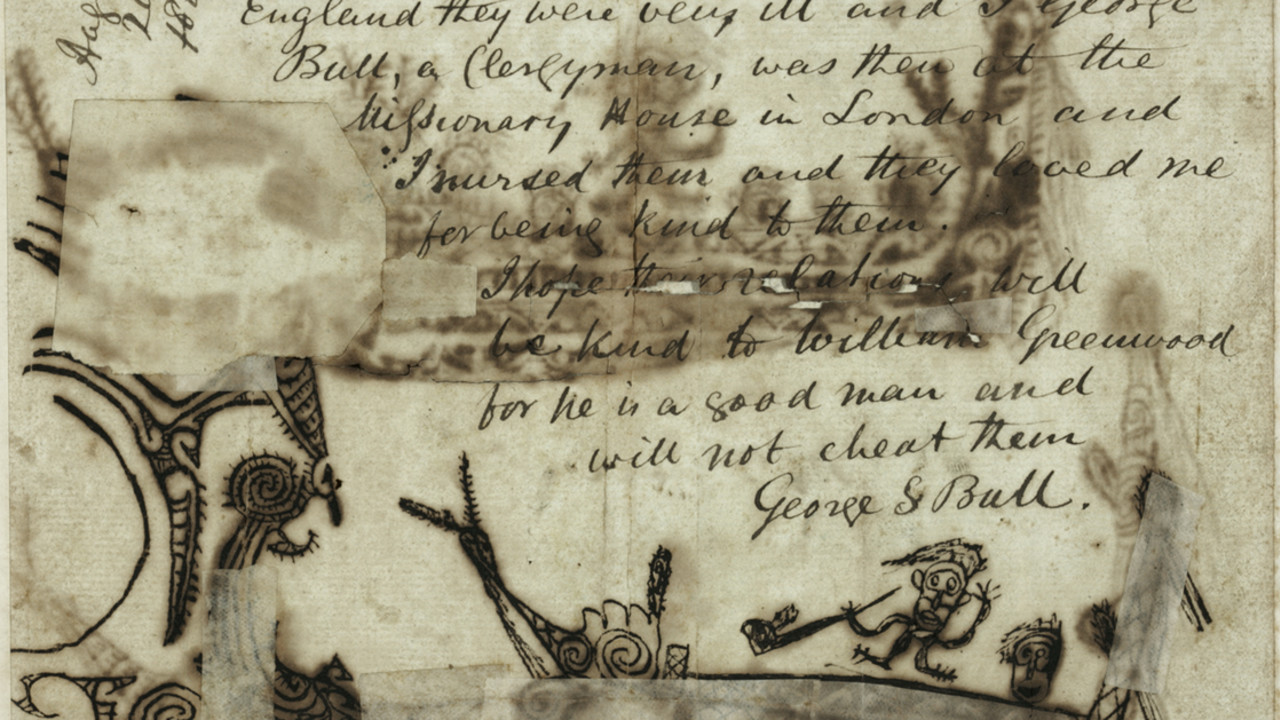 England they were very ill and I George
Bull, a Clergyman, was then at the
Missionary House in London and
I nursed them and they loved me
for being kind to them.
I hope their relations will
be kind to William Greenwood
for he is a good man and
will not cheat them
George S Bull.